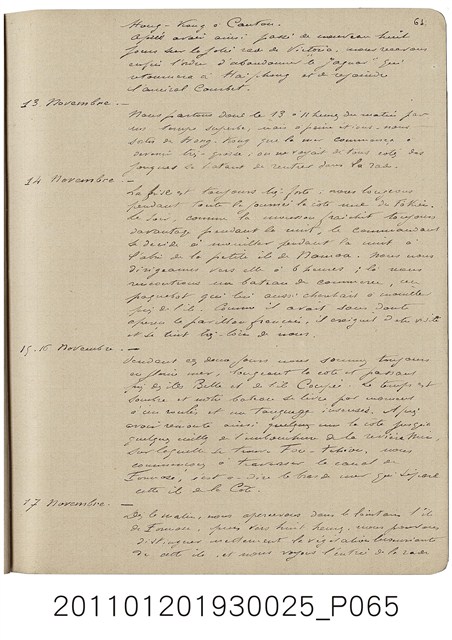 63
Hong-Kong à Canton.
Après avoir ainsi passé de nouveau huit
jours sur la jolie rade de Victoria, nous recevons
enfin l'ordre d'abandonner le "Jaguar" qui
retournera à Haï-phong et de rejoindre
l'amiral Courbet.
13 Novembre. —
Nous partons donc le 13 à 11 heures du matin par
un temps superbe, mais à peine étions-nous
sortis de Hong-Kong que la mer commence à
devenir très-grosse, on ne voyait de tous côtés des
jonques se hâtant de rentrer dans la rade.
14 Novembre. —
La brise est toujours très-forte; nous longeons
pendant toute la journée la côte
le soir, comme la mousson fraîchit toujours
davantage pendant la nuit, le commandant
se décide à mouiller pendant la nuit à
l'abri de la petite île de Namoa. Nous nous
dirigeâmes vers elle à 6 heures; là nous
rencontrons un bateau de commerce, un
paquebot qui lui aussi cherchait à mouiller
près de l'île. Comme il avait sans doute
aperçu le pavillon français, il craignit d'être visité
et se tint très-loin de nous.
15-16 Novembre. —
Pendant ces deux jours nous sommes toujours
en pleine mer, longeant la côte et passant
près de l'île Belle et de l'île Coupée. Le temps est
sombre et notre bateau se livre par moments
à un roulis et un tangage insensés. Après
avoir remonté ainsi quelque peu la côte jusqu'à
quelques milles de l'embouchure de la rivière Min,
sur laquelle se trouve Fou-Tchéou, nous
commençons à traverser le canal de
Formose, c'est-à-dire le bras de mer qui sépare
cette île de la Côte.
17 Novembre. —
Dès le matin, nous apercevons dans le lointain l'île
de Formose, puis vers huit heures, nous pouvons
distinguer nettement la végétation luxuriante
de cette île, et nous voyons l'entrée de la rade
201101201930025_P065